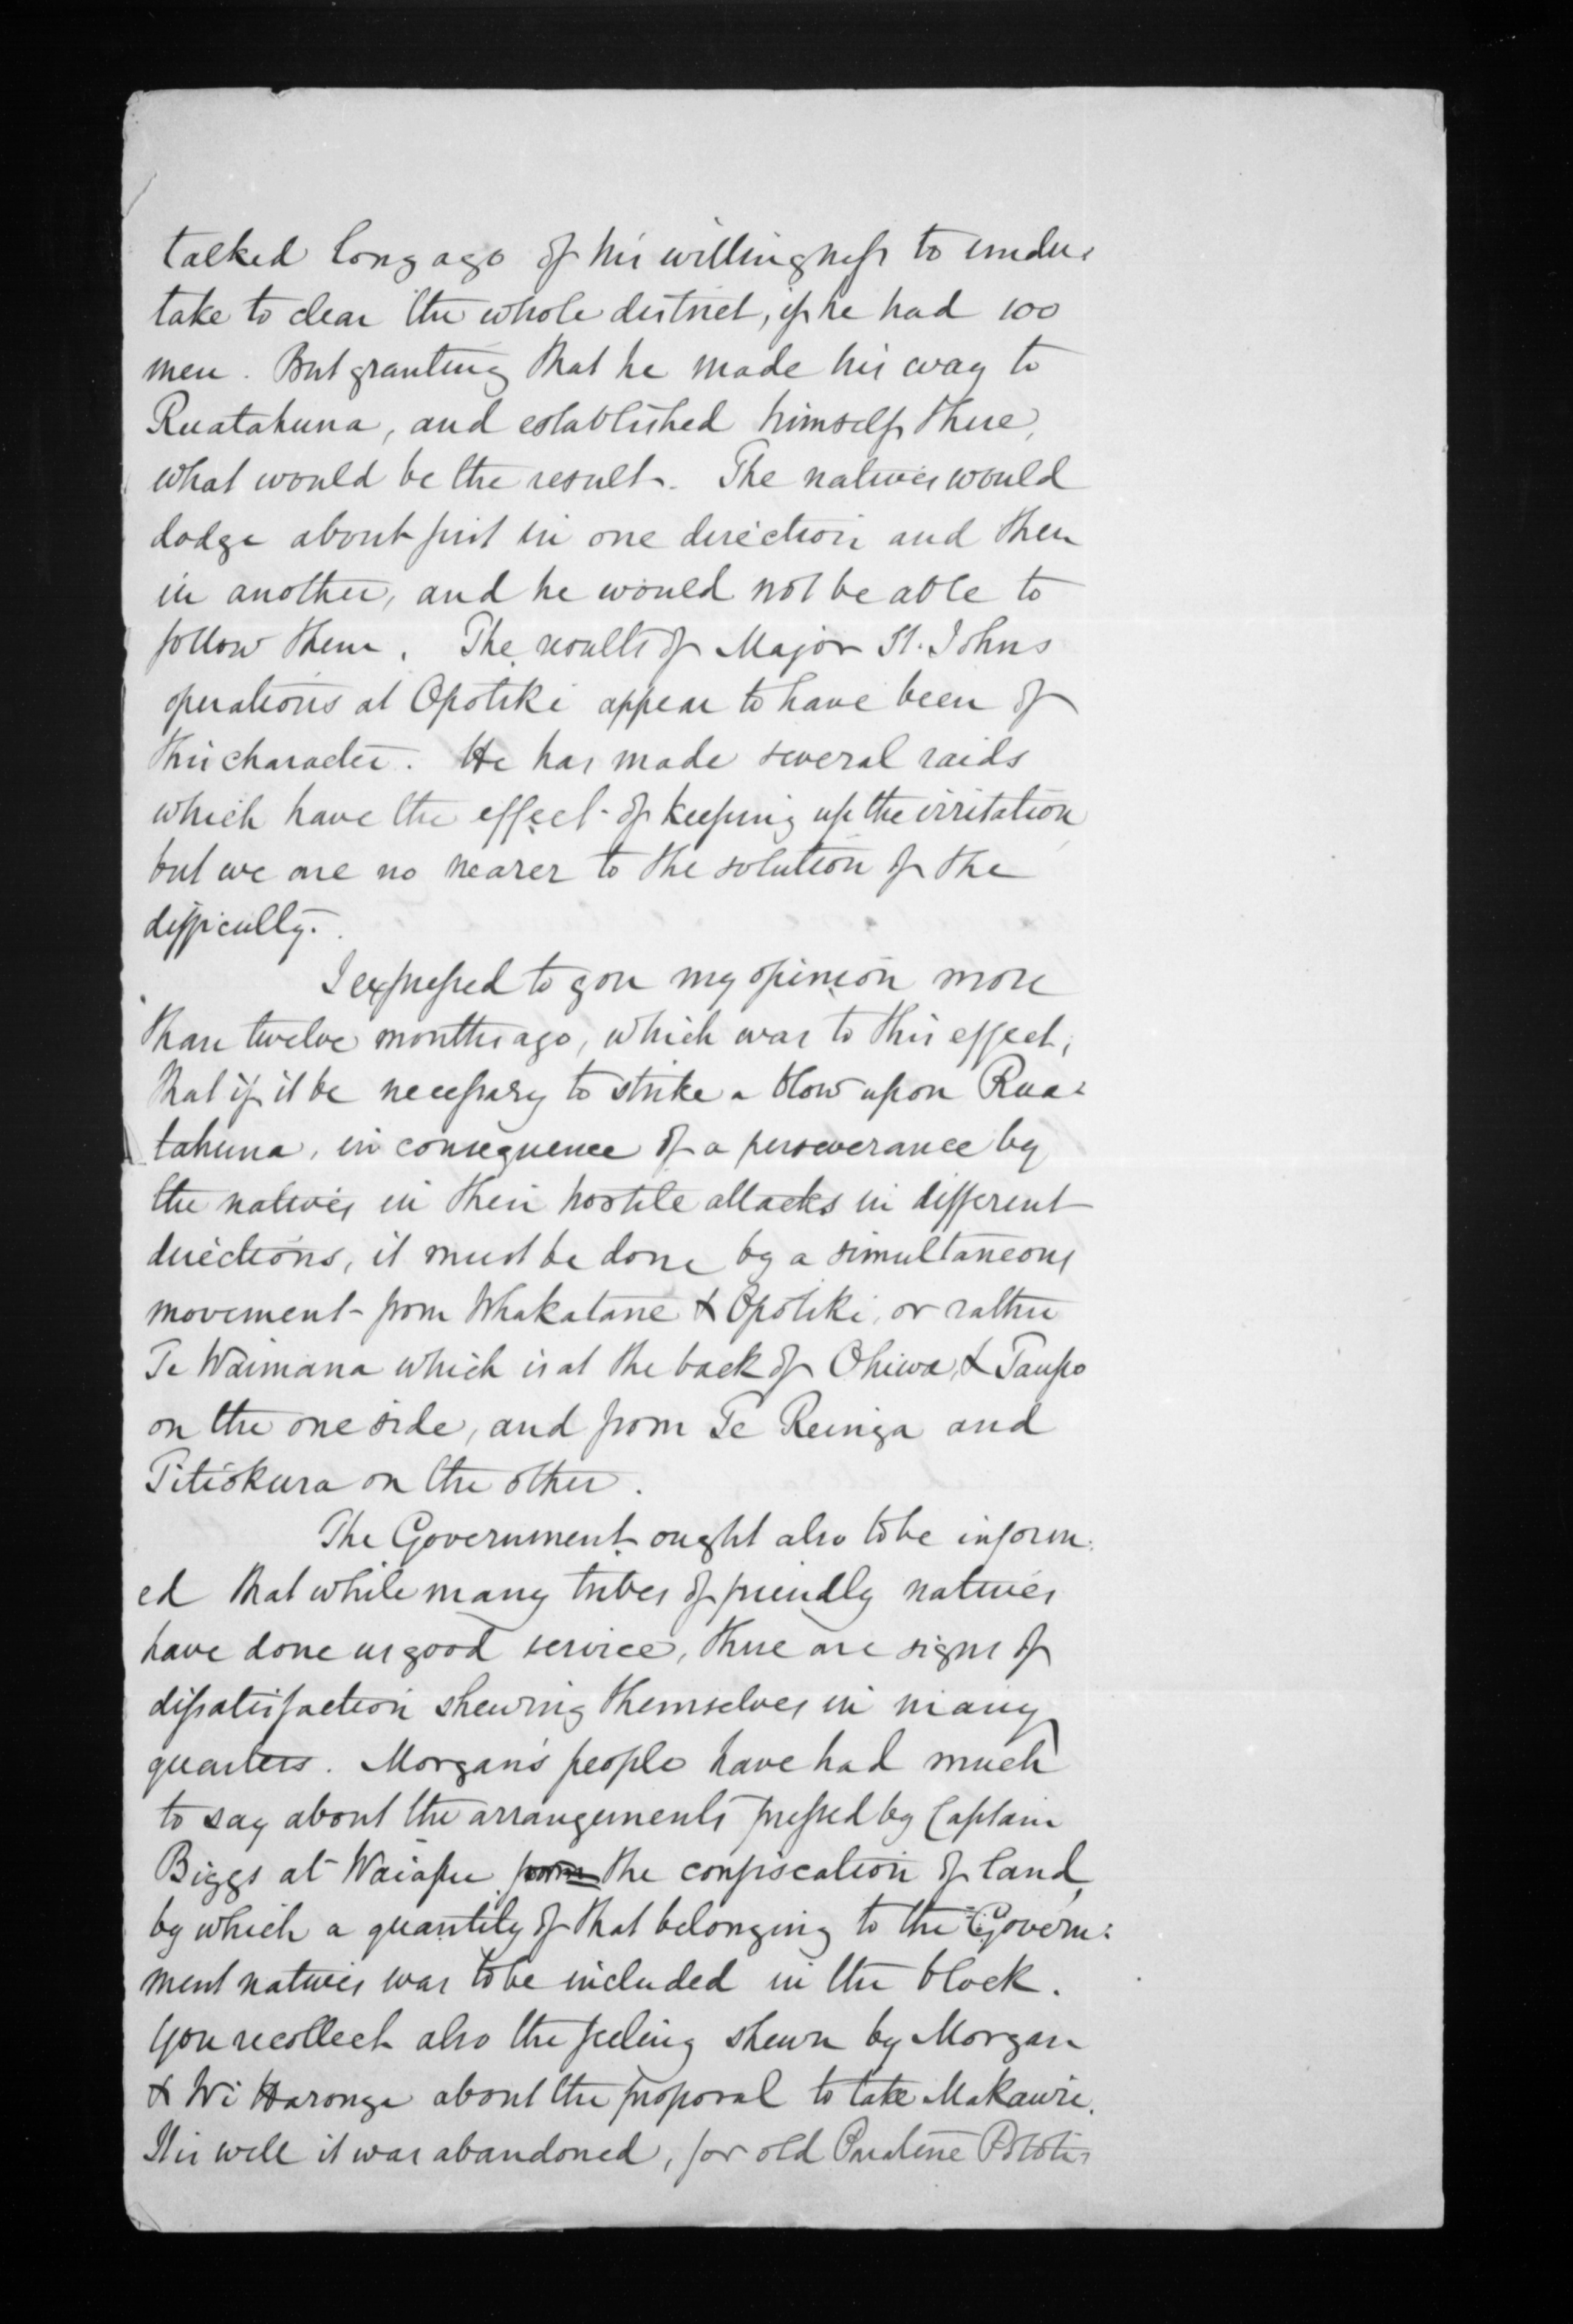 talked long ago of his willingness to under:
take to clear the whole district, if he had 100
men. But granting that he made his way to
Ruatahuna, and established himself there,
what would be the result. The natives would
dodge about first in one direction and then
in another, and he would not be able to
follow them. The results of Major St. Johns
operations at Opotiki appear to have been of
this character. He has made several raids
which have the effect of keeping up the irritation
but we are no nearer to the solution of the
difficulty.
I expressed to you my opinion more
than twelve months ago, which was to this effect,
that if it be necessary to strike a blow upon Rua:
tahuna, in consequence of a perseverance by
the natives in their hostile attacks in different
directions, it must be done by a simultaneous
movement from Whakatane & Opotiki, or rather
Te Waimana which is at the back of Ohiwa, & Taupo
on the one side, and from Te Reinga and
Titiokura on the other.
The Government ought also to be inform:
ed that while many tribes of friendly natives
have done us good service, there are signs of
dissatisfaction shewing themselves in many
quarters. Morgan's people have had much
to say about the arrangements pressed by Captain
Biggs at Waiapu the confiscation of land,
by which a quantity of that belonging to the Govern:
ment natives was to be included in the block.
You recollect also the feeling shewn by Morgan
& Wi Haronga about the proposal to take Makauri.
It is well it was abandoned, for old